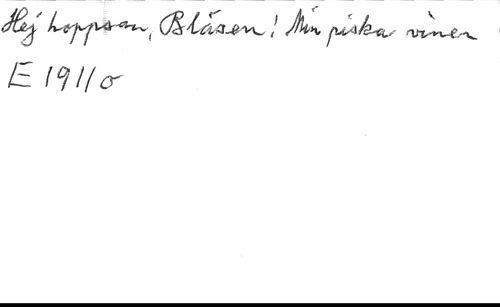 Hej hoppsan, Blåsen! Min piska viner
E 1911 o